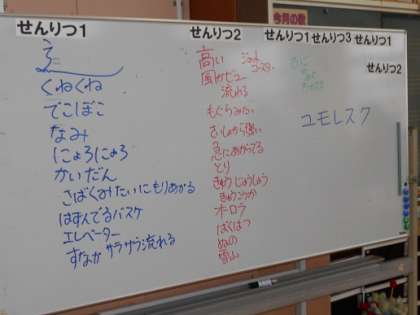 今月の歌
せんりつ1
せんりつ2
せんりつ1 せんりつ3 せんりつ1
せんりつ2
くねくね
でこぼこ
なみ
にょろにょろ
かいだん
さばくみたいにもりあがる
はずんでるバスケ
エレベーター
すなが サラサラ流れる
高い
風がビュー
流れる
もぐらみたい
さいしょから強い
急にあがってる
とり
きゅうじょうしょう
きゅうこうか
オーロラ
ばくはつ
ぬの
雪山
ユモレスク